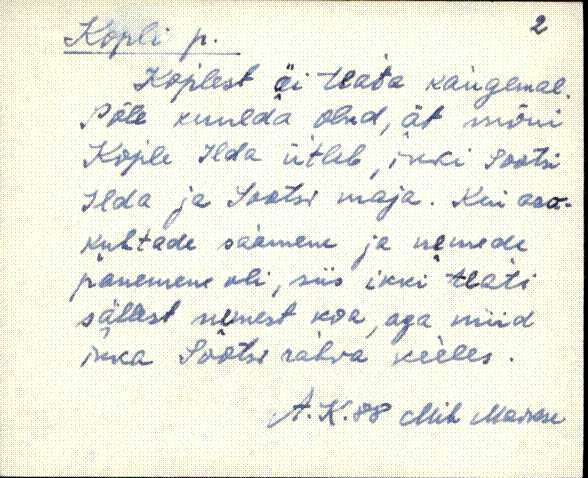 2
Kopli p.
Koplest äi teata kaugemal.
Põle kuulda olnd, ät mõni
Kople Ilda ütleb, ikki Sootsi
Ilda ja Sootsi maja. Kui aso-
kuhtade saamene ja nemede
panemene oli, siis ikki teati
sällest nemest koa, aga nüid
ikka Sootsi rahva keeles.
A.K. 88 Mih